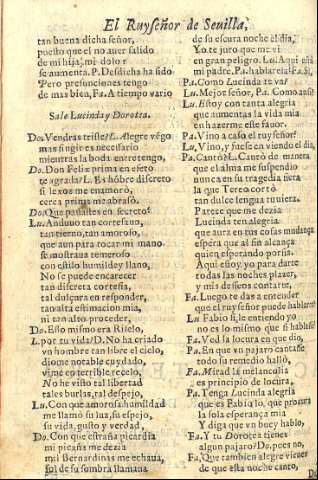 El Ruyseñor de Seuilla,
tan buena dicha señor,
puesto que el no auer salido
de mi hija, mi dolor
se aumenta. P. Desdicha ha sido
Pero presunciones tengo
de mas bien, Fa. A tiempo vario
Sale Lucinda y Dorotea.
Do. Vendras triste? L. Alegre vẽgo
mas fingir es necessario
mientras la boda entretengo,
Do. Don Felix prima en efeto
te agrada? L. Es hõbre discreto
si lexos me enamorò,
cerca prima me abrasò.
Do. Que passastes en secreto?
Lu. Anduuo tan cortesano,
tan tierno, tan amoroso,
que aun para tocar mi mano
se mostraua temeroso
con estilo humilde y llano,
No se puede encarecer
tan discreta cortesia,
tal dulçura en responder,
tan alta estimacion mia,
ni tan alto proceder,
Do. Esto mismo era Riselo,
L. por tu vida? D. No ha criado
vn hombre tan libre el cielo,
diome notable cuydado,
vime en terrible recelo,
No he visto tal libertad
tales burlas, tal despejo,
Lu. Con que amorosa humildad
me llamó su luz, su espejo,
su vida, gusto y verdad,
Do. Con que estraña picardia
mi picaña me dezia
mil Bernardinas me echaua,
sol de su sombra llamaua
de su escura noche el dia,
Yo te juro que me vi
en gran peligro. Lu. Aqui està
mi padre. Pa. hablarela? Fa. Si,
Pa. Como Lucinda te va?
Lu. Mejor señor, Pa. Como ansi?
Lu. Estoy con tanta alegria
que aumentas la vida mia
en hazerme esse fauor.
Pa. Vino a caso el ruyseñor?
Lu. Vino, y fuese en viendo el dia,
Pa. Cantò? L. Cantò de manera
que el alma me suspendio
nunca en su tragedia fiera
la que Tereo cortò
tan dulce lengua tuuiera.
Parece que me dezia
Lucinda ten alegria
que aura en tus cosas mudança
espera que al fin alcança
quien esperando porfia.
Aqui estoy yo para darte
todas las noches plazer,
y mis desseos contarte,
Fa. Luego te das a entender
que el ruyseñor puede hablarte?
Lu Fabio si, le entiendo yo
no es lo mismo que si hablasse?
Fa. Ved la locura en que dio,
Pa. En que vn pajaro cantasse
todo su remedio hallò,
Fa. Mirad la melancolia
es principio de locura,
Pa. Tenga Lucinda alegria
que es Fabia lo, que procura
la sola esperança mia
Y diga que vn buey hablo,
Fa. Y tu Dorotea tienes
algun pajaro? Do. pees no,
Fa. Que tambien alegre vienes
de que esta noche canto,